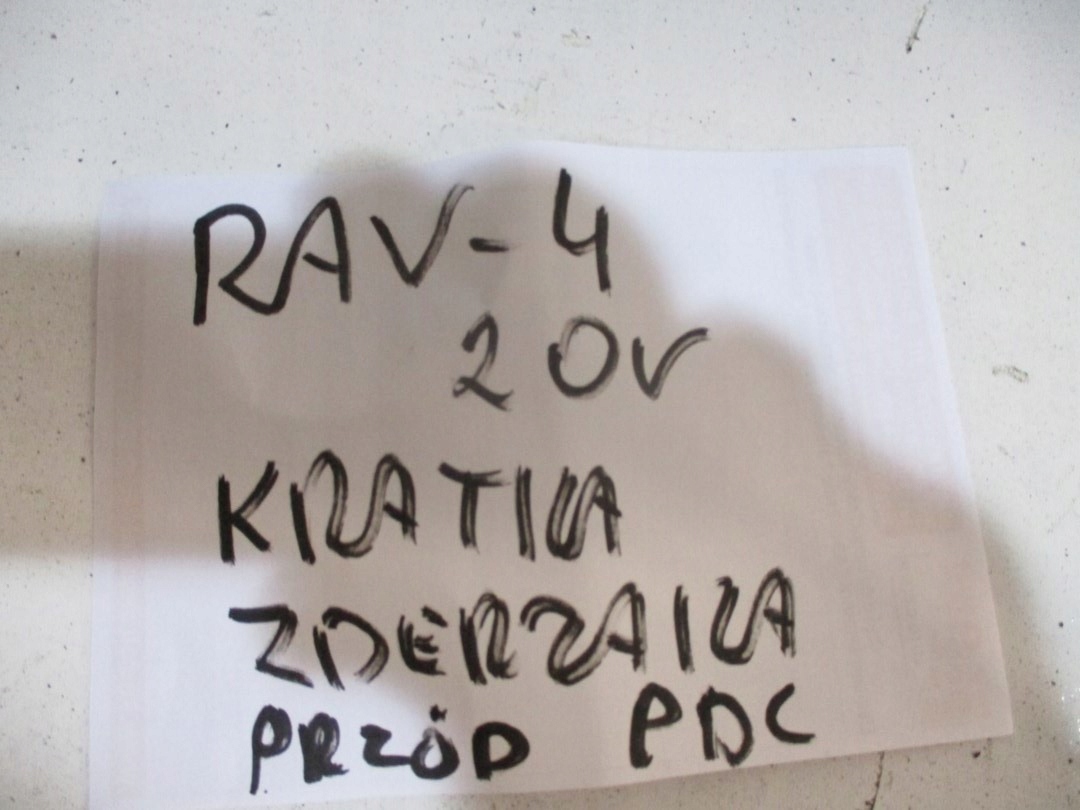 RAV-4
20r
KRATKA
ZDERZAKA
PRZÓD PDC